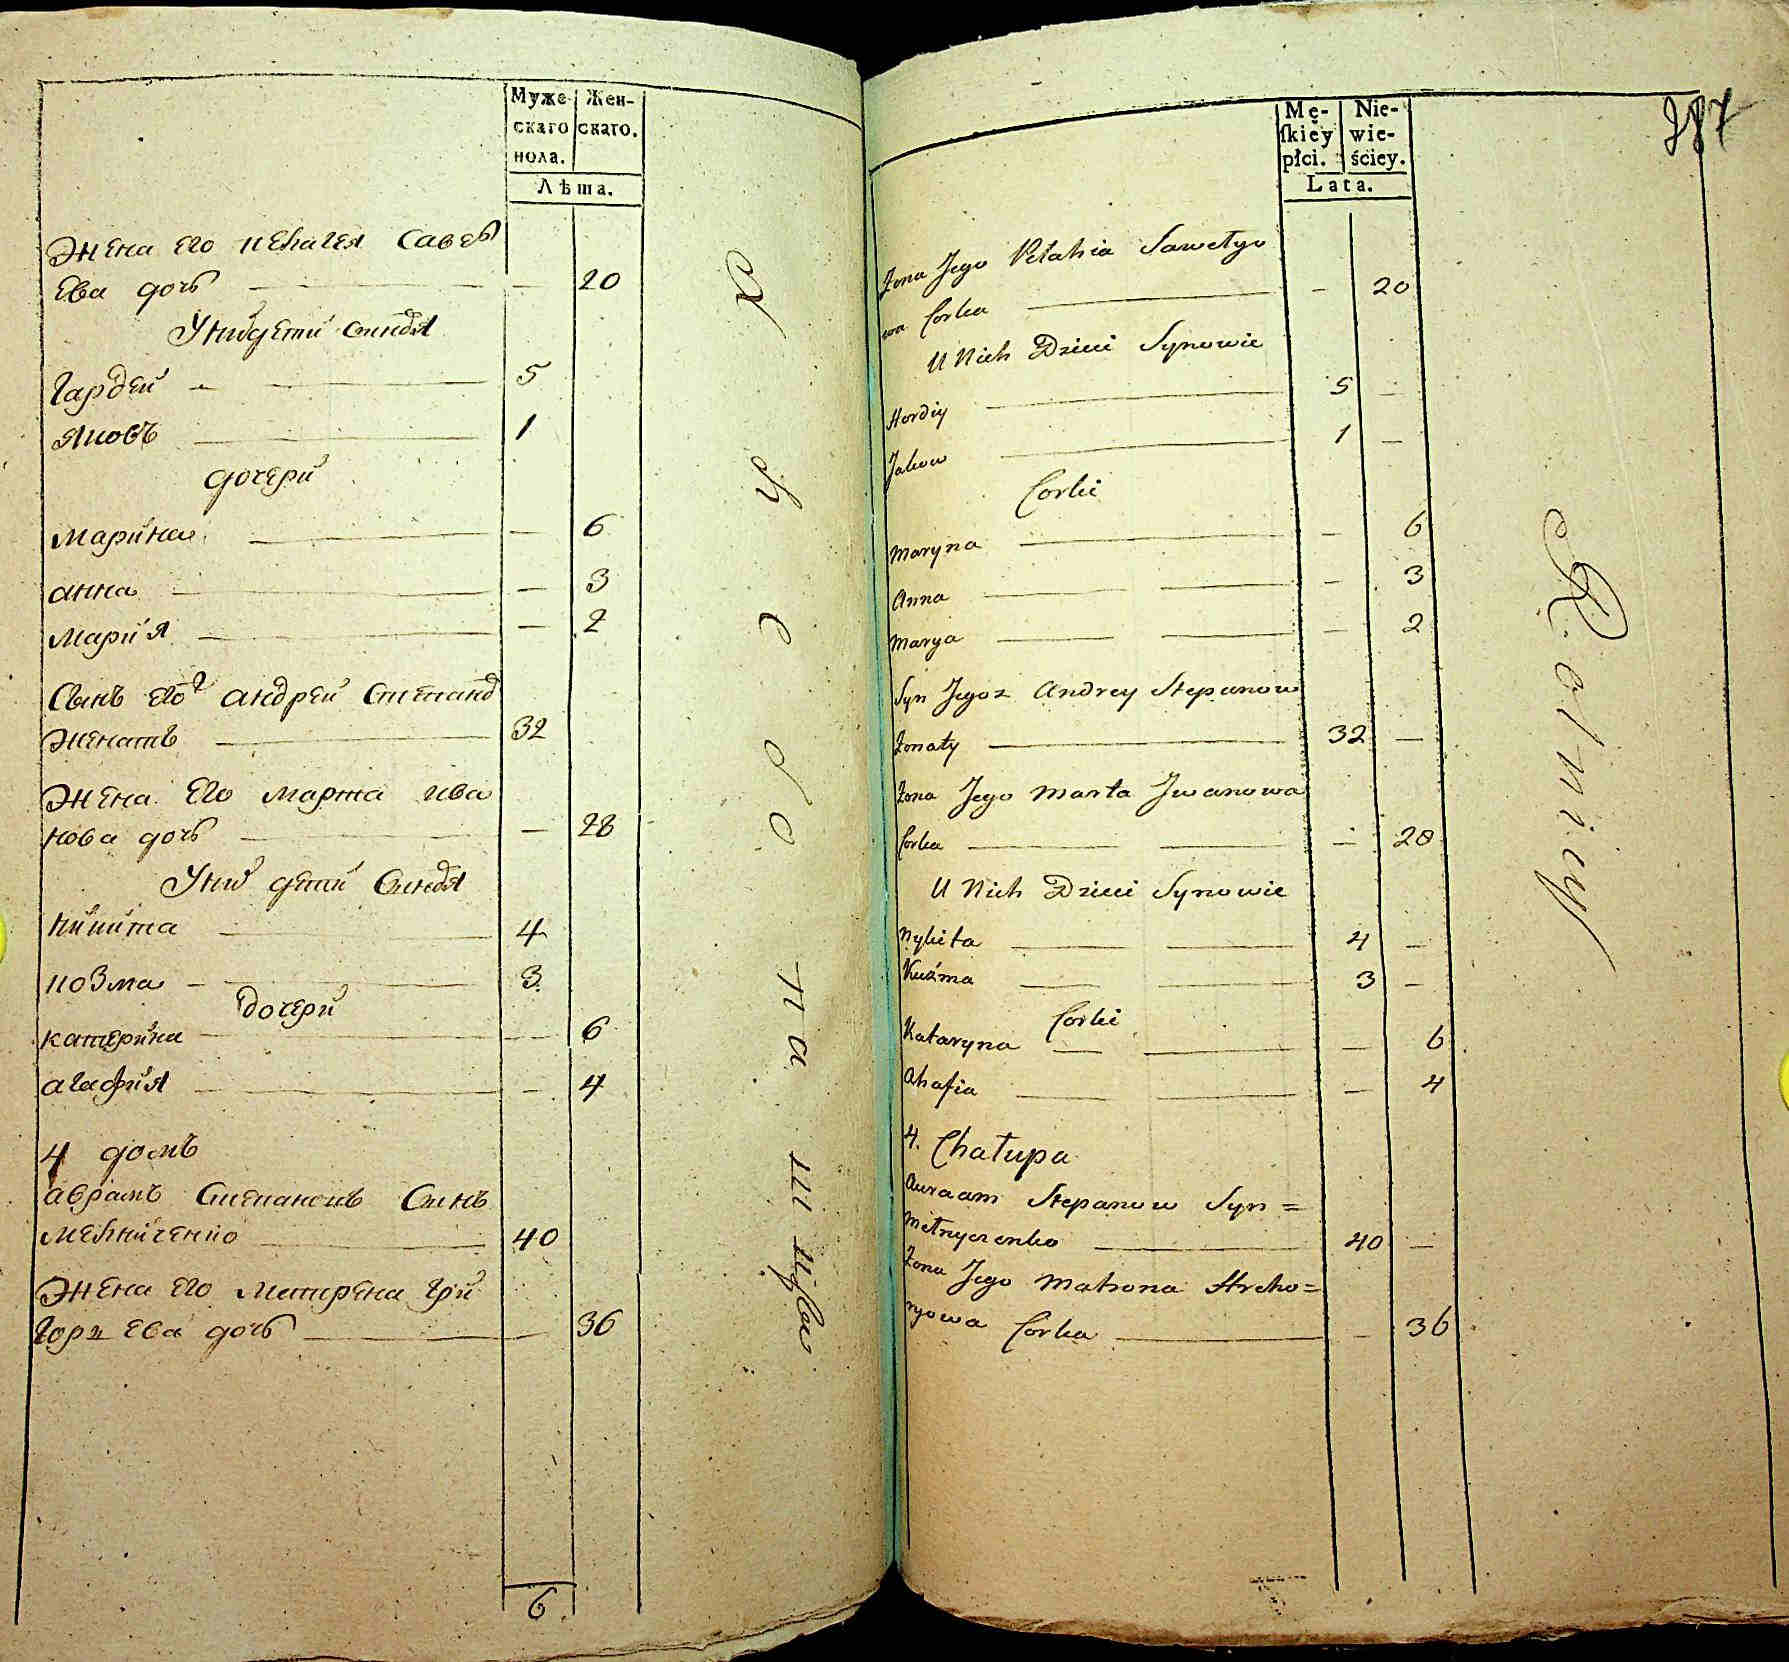 Муже-
скаго
пола.
Жен-
скаго.
Лѣта.
Жена его пелагея Савел
Ева дочь — — 20
У них дети Синовя
Гардей — 5
Яковъ — 1
дочери
Марина — — 6
анна — — 3
Мария — — 2
Сынъ его 2 андрей Степанов
женатъ — 32
Жена его марта ива
нова дочь — — 28
У них дети Синовя
никита — 4
козма — 3
дочери
катерина — — 6
агафия — — 4
4 домъ
аврамъ Степановъ Синъ
мелниченко — 40
Жена его Матрена Гри
горь Ева дочь — — 36
6
Mę-
ſkiey
płci.
Nie-
wie-
ściey.
Lata.
287
Żona Jego Pełahia Sawełyo
wa Corka — — 20
U Nich Dzieci Synowie
Hordiy — 5 —
Jakow — 1 —
Corki
Maryna — — 6
Anna — — 3
Marya — — 2
Syn Jego 2 Andrey Stepanow
żonaty — 32 —
Żona Jego Marta Jwanowa
Corka — — 28
U Nich Dzieci Synowie
Nykita — 4 —
Kuźma — 3 —
Corki
Kataryna — — 6
Ahafia — — 4
4. Chałupa
Awraam Stepanow Syn =
Mełnyczenko — 40 —
Żona Jego Matrona Hreho=
ryowa Corka — — 36